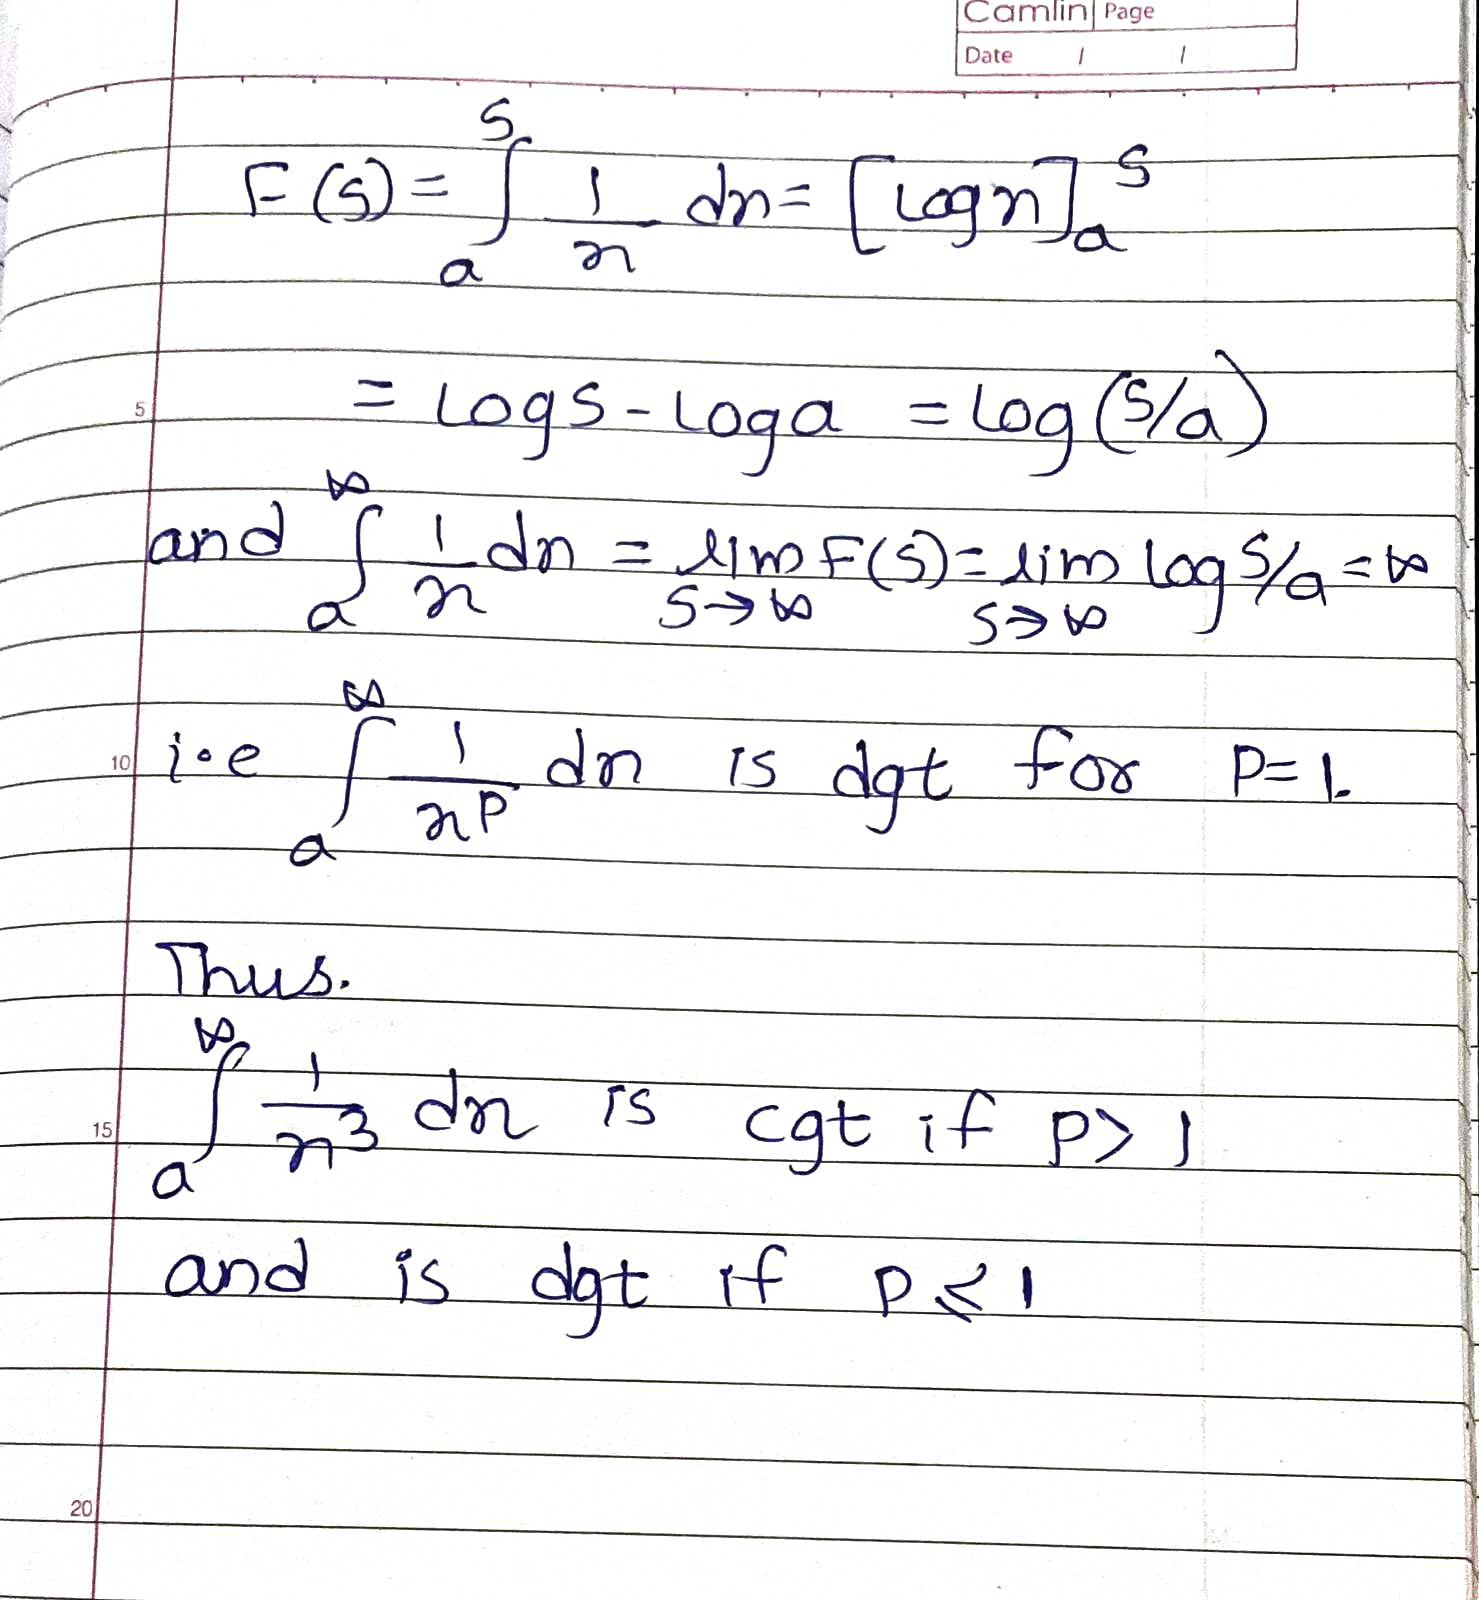 Camlin Page
Date / /
F(s) = ∫_a^s 1/x dx = [log x]_a^s
5
= log s - log a = log (s/a)
and ∫_a^∞ 1/x dx = lim_{s→∞} F(s) = lim_{s→∞} log s/a = ∞
10
i.e ∫_a^∞ 1/x^p dx is dgt for p=1.
Thus.
15
∫_a^∞ 1/x^3 dx is cgt if p > 1
and is dgt if p ⩽ 1
20